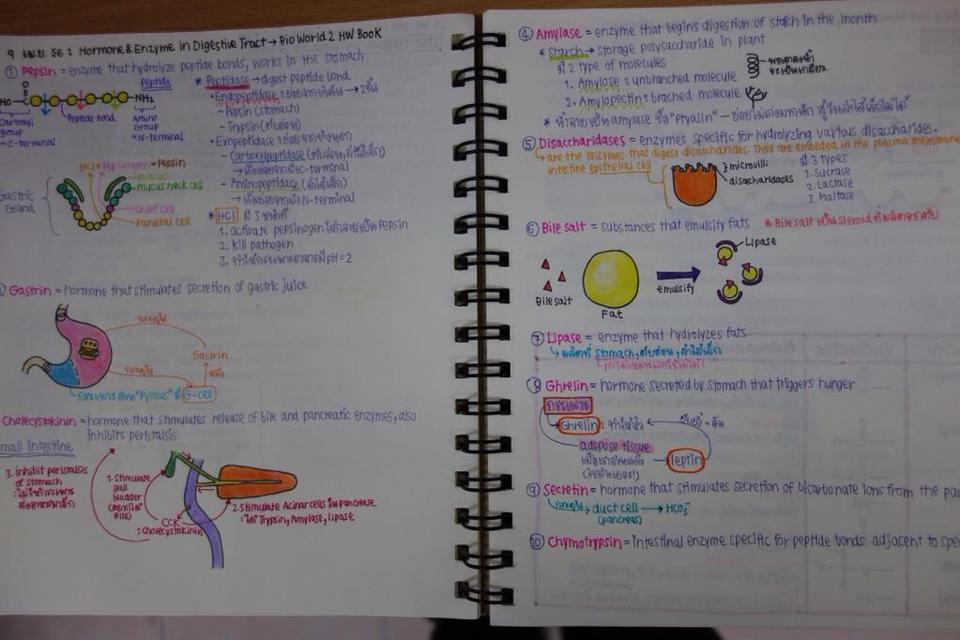 9 เม.ย. 56 : Hormone & Enzyme in Digestive Tract → Bio World 2 HW Book
① Pepsin = enzyme that hydrolyze peptide bonds, works in the stomach
Peptide
HO
C
O
NH₂
Carboxyl group
= C-terminal
Peptide bond
Amino Group
= N-terminal
* Peptidase → digest peptide bond
• Endopeptidase :
- Pepsin (stomach)
- Trypsin (ตับอ่อน)
• Exopeptidase
- Carboxypeptidase (ตับอ่อน, ลำไส้เล็ก)
C-terminal
- Aminopeptidase (ลำไส้เล็ก)
N-terminal
HCl + Pepsinogen → Pepsin
mucus
mucus neck cell
Gastric Gland
Chief cell
Parietal cell
* HCl มี 3 หน้าที่
1. activate pepsinogen ให้กลายเป็น Pepsin
2. kill pathogen
3. pH = 2
Gastrin = hormone that stimulates secretion of gastric juice
กระตุ้น
Gastrin
หลั่ง
กระตุ้น
"Pylorus" มี G-cell
Cholecystokinin = hormone that stimulates release of bile and pancreatic enzymes, also
inhibits peristalsis
Small Intestine
3. inhibit peristalsis
of stomach
1. Stimulate
gall
bladder
CCK
: Cholecystokinin
2. Stimulate Acinar cells ใน pancreas
: ให้ Trypsin, Amylase, lipase
④ Amylase = enzyme that begins digestion of starch in the month
* Starch → storage polysaccharide in plant
มี 2 type of molecules
1. Amylose : unbranched molecule
2. Amylopectin : brached molecule
* น้ำลายเป็น amylase ชื่อ "Ptyalin"
⑤ Disaccharidases = enzymes specific for hydrolyzing various disaccharides.
→ are the enzymes that digest disaccharides. They are embeded in the plasma membrane
intestine epithelial cell
microvilli
disaccharidases
มี 3 types
1. Sucrase
2. Lactase
3. Maltase
⑥ Bile salt = substances that emulsify fats
* Bile salt เป็น steroid
Lipase
Bile salt
Fat
emulsify
⑦ Lipase = enzyme that hydrolyzes fats
ผลิตที่ stomach, ตับอ่อน, ลำไส้เล็ก
⑧ Ghrelin = hormone secreted by stomach that triggers hunger
กระเพาะ
Ghrelin : ทำให้หิว
ยับยั้ง
adipose tissue
leptin
⑨ Secretin = hormone that stimulates secretion of bicarbonate ions from the
กระตุ้น duct cell → HCO₃⁻
(pancreas)
⑩ Chymotrypsin = intestinal enzyme specific for peptide bonds adjacent to